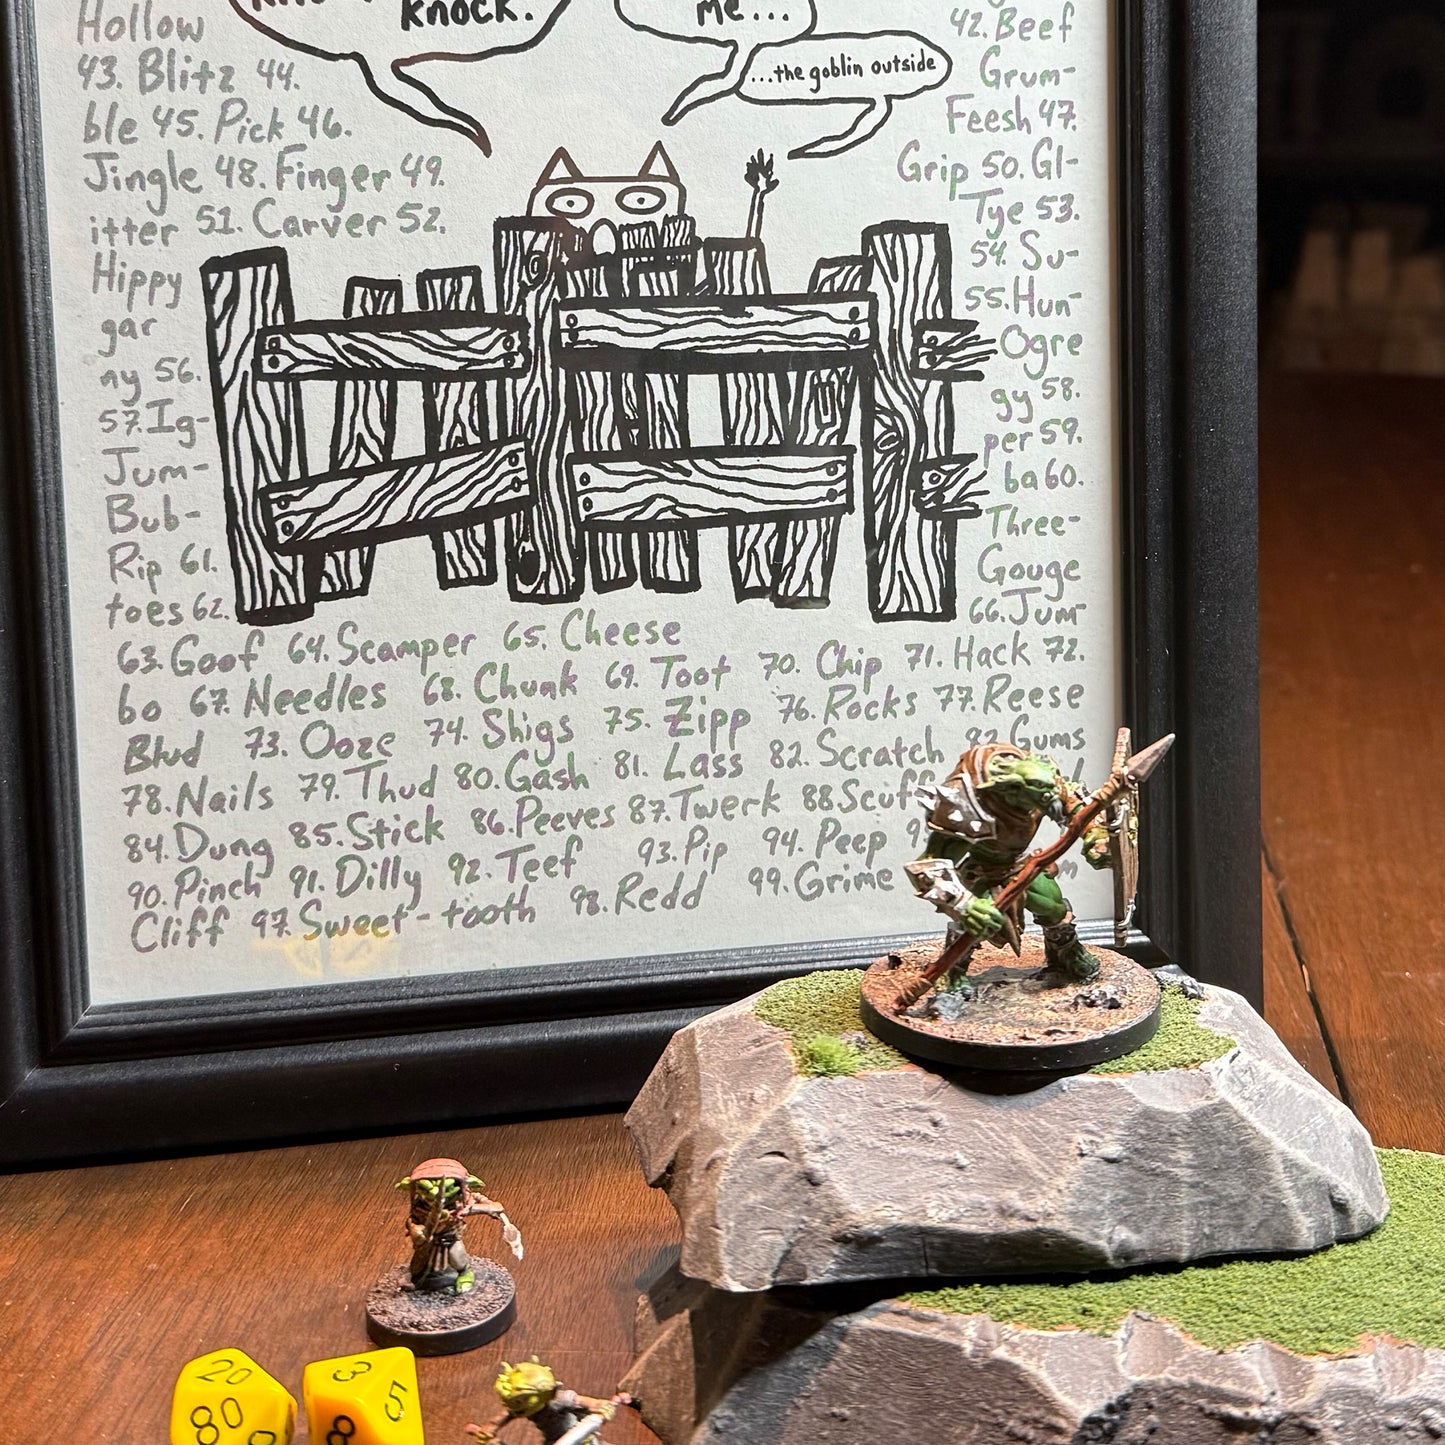 Hollow
knock.
me...
42. Beef
43. Blitz 44.
...the goblin outside
Grum-
ble 45. Pick 46.
Feesh 47.
Jingle 48. Finger 49.
Grip 50. Gl-
itter 51. Carver 52.
Tye 53.
Hippy
54. Su-
gar
55. Hun-
ny 56.
Ogre
57. Ig-
gy 58.
Jum-
per 59.
Bub-
ba 60.
Rip 61.
Three-
toes 62.
Gouge
63. Goof 64. Scamper 65. Cheese
66. Jum-
bo 67. Needles 68. Chunk 69. Toot 70. Chip 71. Hack 72.
Blud 73. Ooze 74. Shigs 75. Zipp 76. Rocks 77. Reese
78. Nails 79. Thud 80. Gash 81. Lass 82. Scratch 83. Gums
84. Dung 85. Stick 86. Peeves 87. Twerk 88 Scuff
90. Pinch 91. Dilly 92. Teef 93. Pip 94. Peep
Cliff 97. Sweet-tooth 98. Redd 99. Grime
20
80
3
5
8